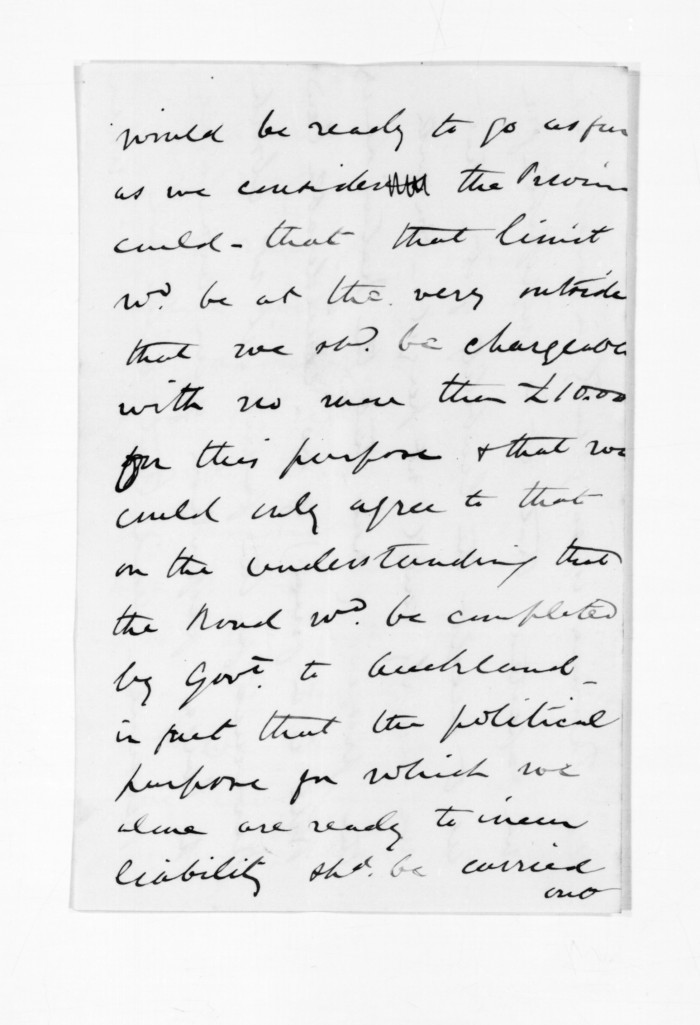 would be ready to go as far
as we consider the Provin
could - that that limit
wd. be at the very outside
that we shd. be chargeab
with no more than £10.00
for this purpose & that we
could only agree to that
on the understanding that
the Road wd. be completed
by Govt. to Auckland -
in fact that the political
purpose for which we
alone are ready to incur
liability shd. be carried
out